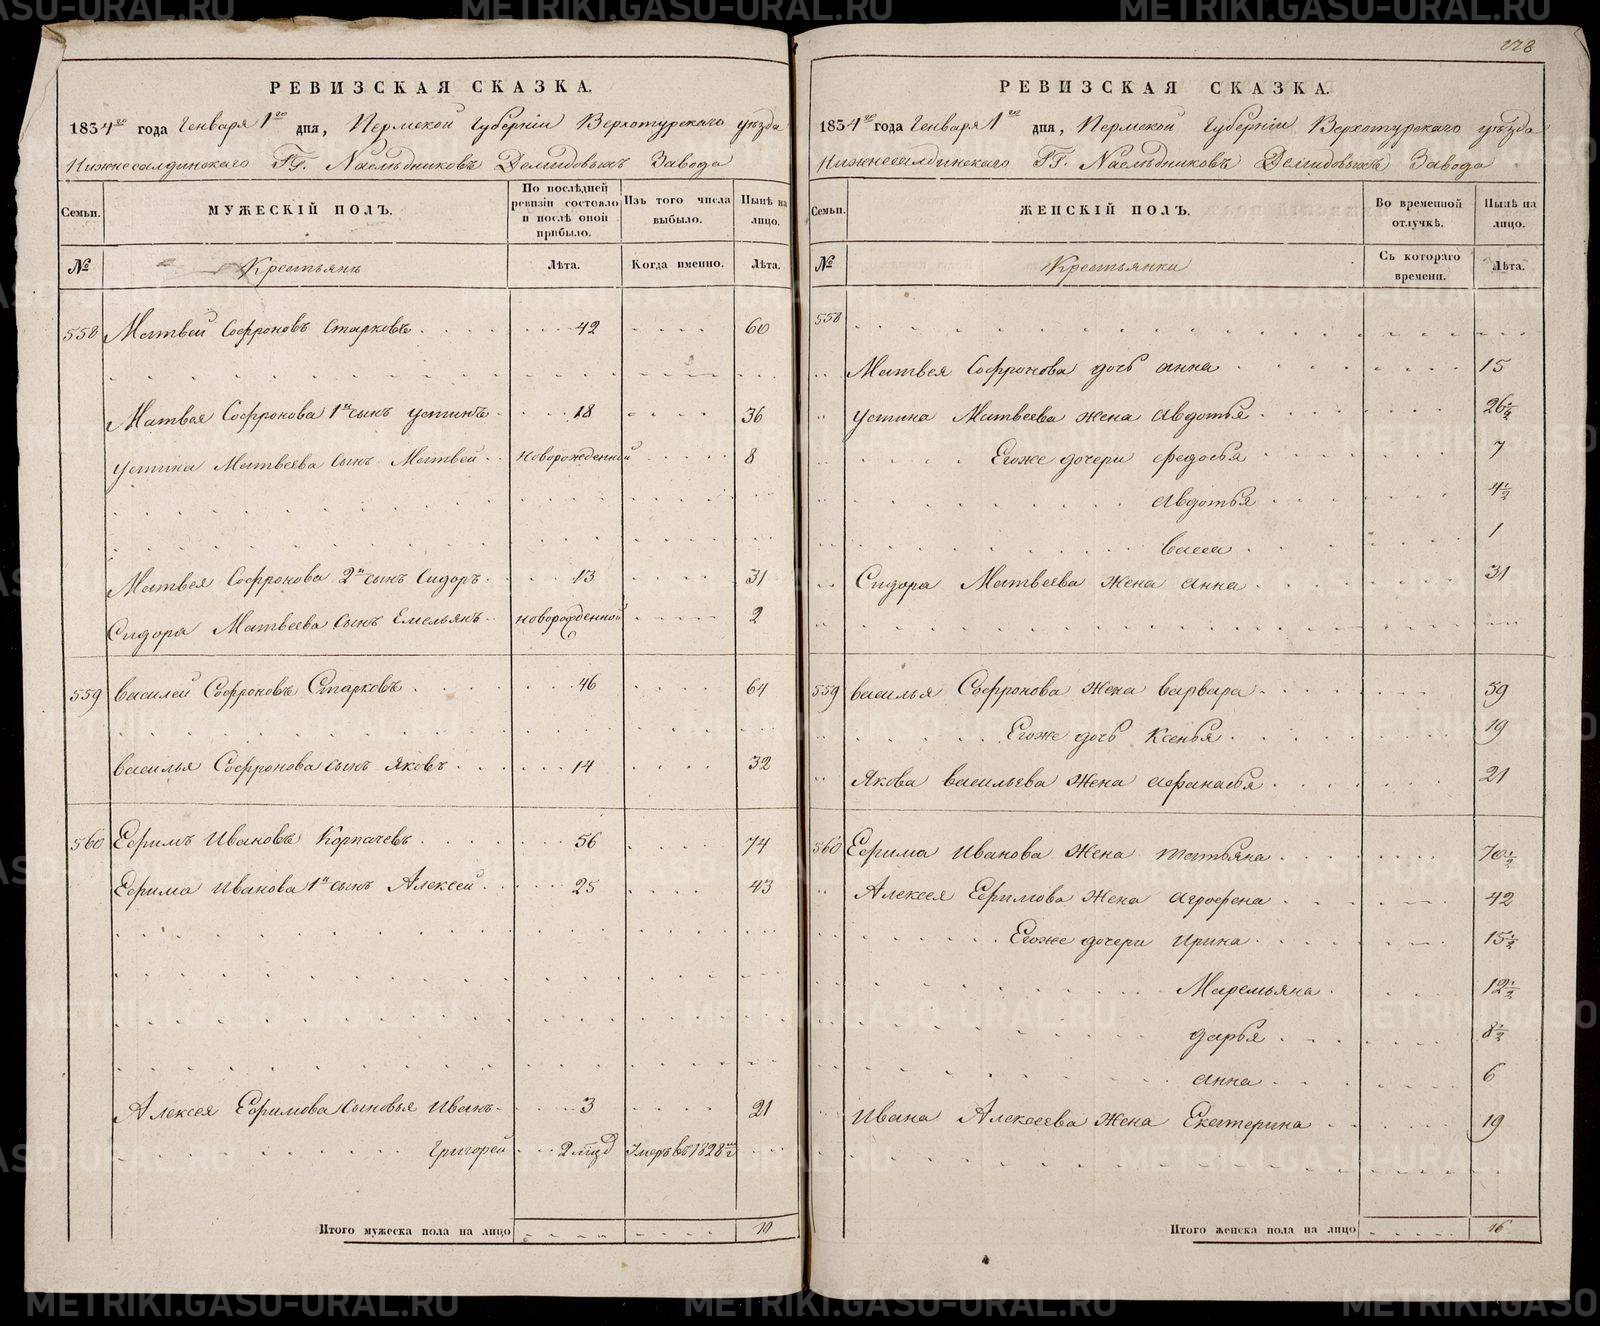 РЕВИЗСКАЯ СКАЗКА.
1834го года Генваря 1го дня, Пермской Губерніи Верхотурскаго уѣзда
Нижнесалдинскаго ГГ. Наслѣдниковъ Демидовыхъ Завода
Семьи.
МУЖЕСКІЙ ПОЛЪ.
По послѣдней ревизіи состояло и послѣ оной прибыло.
Изъ того числа выбыло.
Нынѣ на лицо.
№
Крестьянъ
Лѣта.
Когда именно.
Лѣта.
558 Матвей Софроновъ Старковъ 42 60
Матвея Софронова 1й сынъ Устинъ 18 36
Устина Матвеева сынъ Матвей новорожденной 8
Матвея Софронова 2й сынъ Сидоръ 13 31
Сидора Матвеева сынъ Емельянъ новорожденной 2
559 Василей Софроновъ Старковъ 46 64
Василья Софронова сынъ Яковъ 14 32
560 Ефимъ Ивановъ Корпачевъ 56 74
Ефима Иванова 1й сынъ Алексей 25 43
Алексея Ефимова сыновья Иванъ 3 21
Григорей 2 мцъ Умеръ въ 1828мъ
Итого мужеска пола на лицо 10
128
РЕВИЗСКАЯ СКАЗКА.
1834го года Генваря 1го дня, Пермской Губерніи Верхотурскаго уѣзда
Нижнесалдинскаго ГГ. Наслѣдниковъ Демидовыхъ Завода
Семьи.
ЖЕНСКІЙ ПОЛЪ.
Во временной отлучкѣ.
Нынѣ на лицо.
№
Крестьянки
Съ котораго времени.
Лѣта.
558
Матвея Софронова дочь Анна 15
Устина Матвеева жена Авдотья 26½
Егоже дочери Федосья 7
Авдотья 4½
Васса 1
Сидора Матвеева жена Анна 31
559 Василья Софронова жена Варвара 59
Егоже дочь Ксенья 19
Якова Васильева жена Афанасья 21
560 Ефима Иванова жена Татьяна 70½
Алексея Ефимова жена Агрофена 42
Егоже дочери Ирина 15½
Маремьяна 12½
Дарья 8½
Анна 6
Ивана Алексеева жена Екатерина 19
Итого женска пола на лицо 16
METRIKI.GASO-URAL.RU